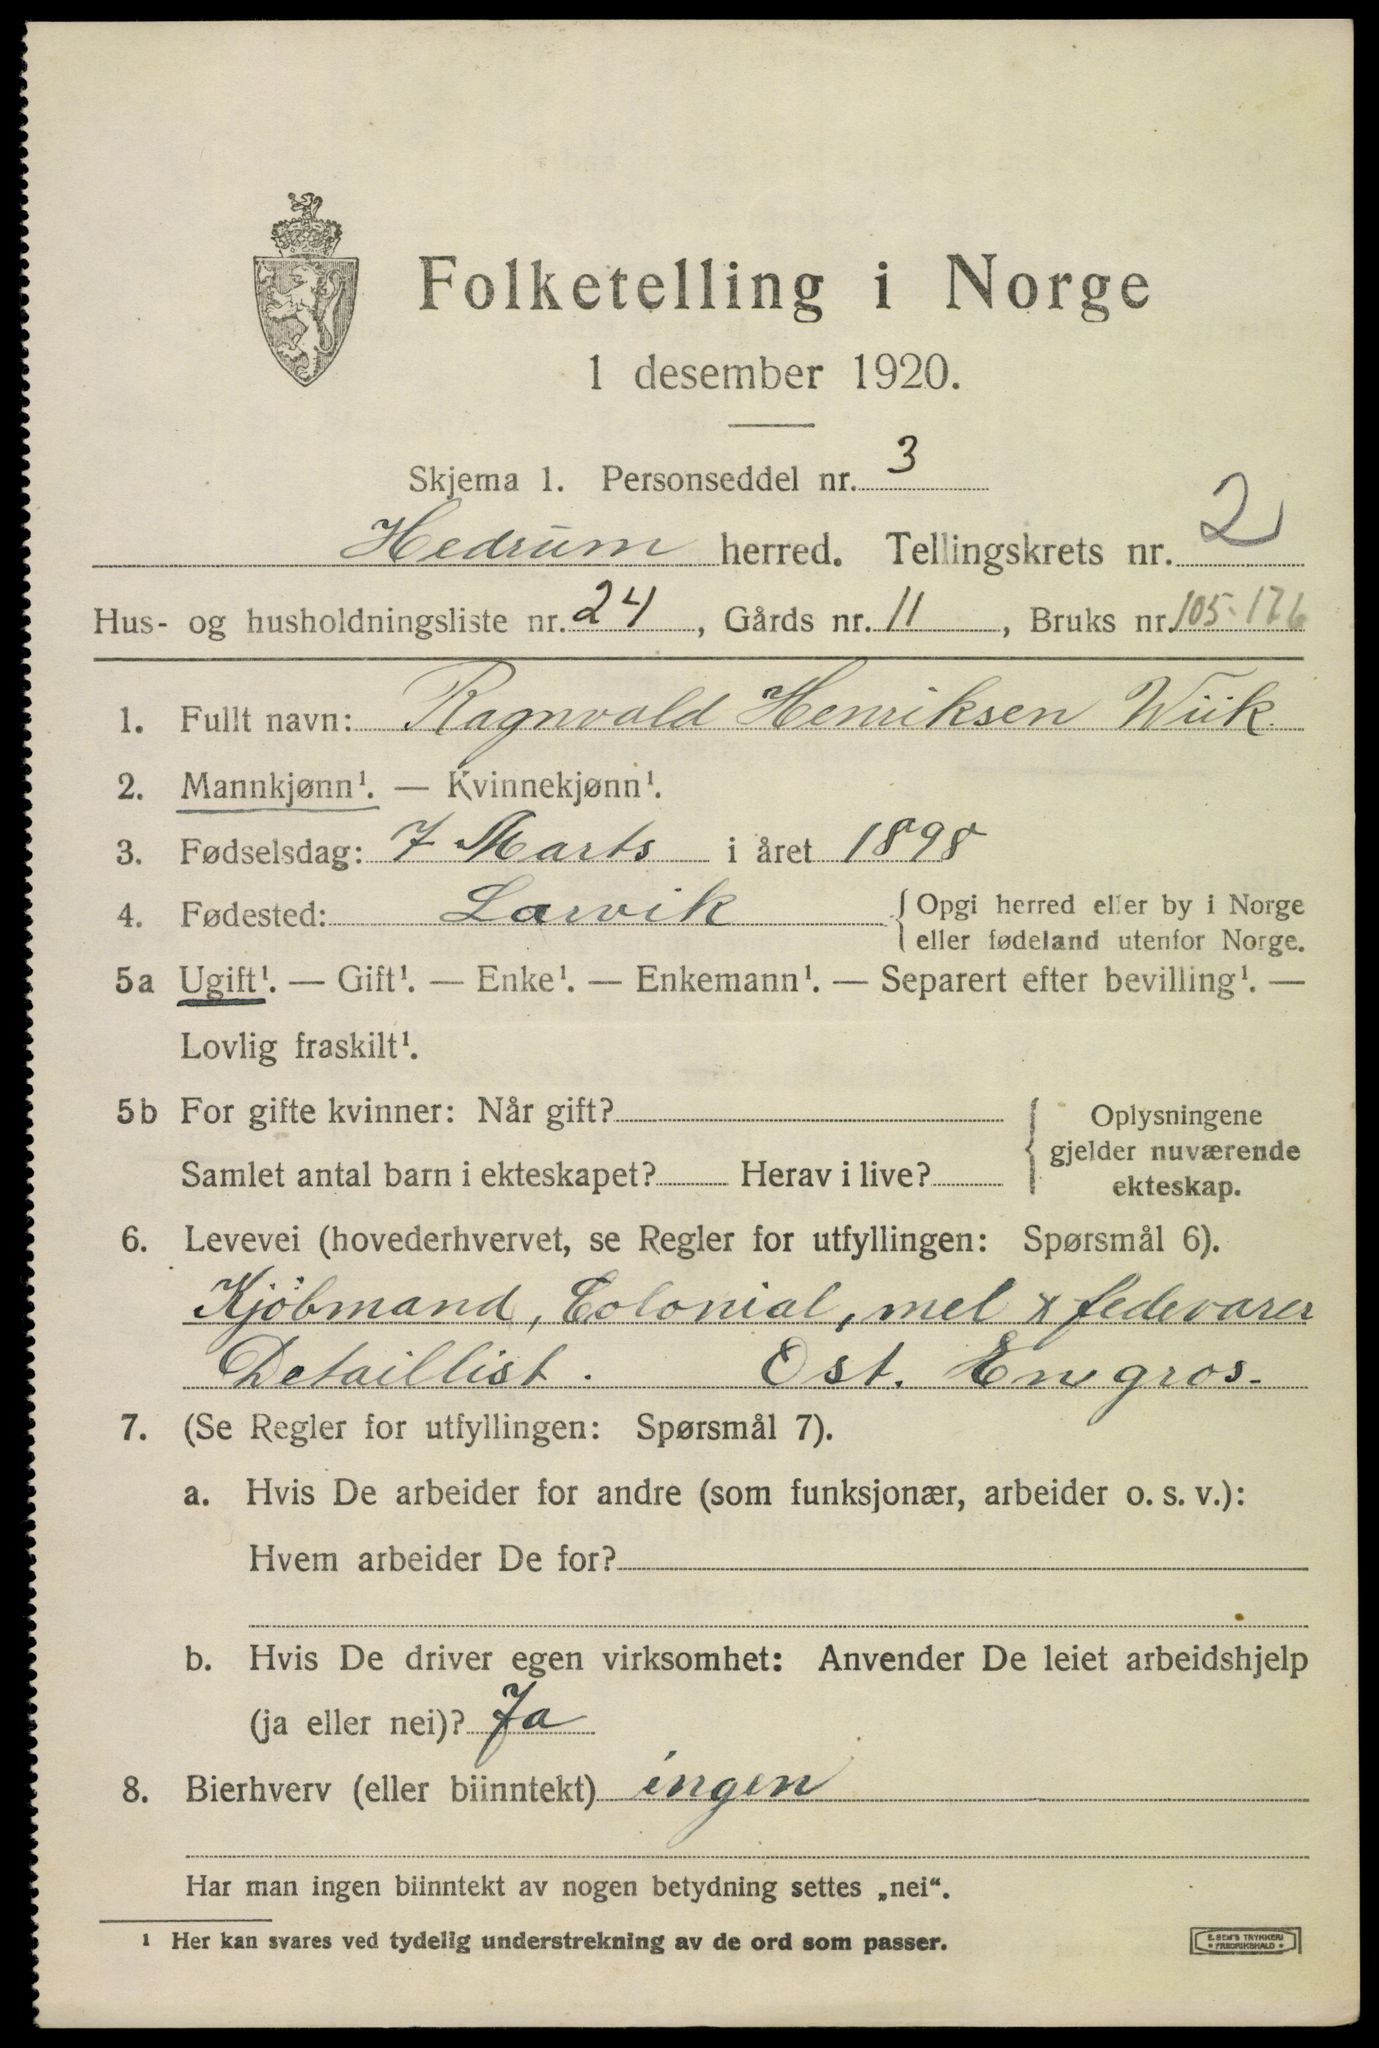 Folketelling i Norge
1 desember 1920.
Skjema 1. Personseddel nr. 3
Hedrum herred. Tellingskrets nr. 2
Hus- og husholdningsliste nr. 24, Gårds nr. 11, Bruks nr. 105-176
1. Fullt navn: Ragnvald Henriksen Wiik.
2. Mannkjønn¹. — Kvinnekjønn¹.
3. Fødselsdag: 7 Marts i året 1898
4. Fødested: Larvik { Opgi herred eller by i Norge
eller fødeland utenfor Norge.
5a Ugift¹. — Gift¹. — Enke¹. — Enkemann¹. — Separert efter bevilling¹. —
Lovlig fraskilt¹.
5b For gifte kvinner: Når gift? { Oplysningene
gjelder nuværende
Samlet antal barn i ekteskapet? Herav i live? ekteskap.
6. Levevei (hovederhvervet, se Regler for utfyllingen: Spørsmål 6).
Kjöbmand, Colonial, mel & fedevarer
Detaillist. Ost. Engros.
7. (Se Regler for utfyllingen: Spørsmål 7).
a. Hvis De arbeider for andre (som funksjonær, arbeider o. s. v.):
Hvem arbeider De for?
b. Hvis De driver egen virksomhet: Anvender De leiet arbeidshjelp
(ja eller nei)? Ja
8. Bierhverv (eller biinntekt) ingen
Har man ingen biinntekt av nogen betydning settes „nei“.
¹ Her kan svares ved tydelig understrekning av de ord som passer.
E. SEM'S TRYKKERI
FREDRIKSHALD